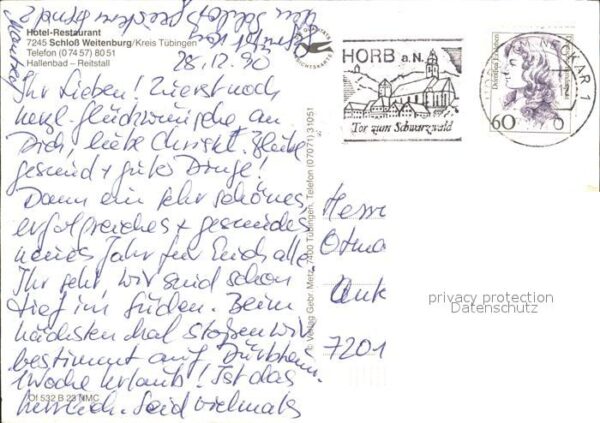 Hotel-Restaurant
7245 Schloß Weitenburg/Kreis Tübingen
Telefon (0 74 57) 80 51
Hallenbad – Reitstall
28.12.90
Ihr Lieben! Zuerst noch
herzl. Glückwünsche an
Dich, liebe Christl. Bleibe
gesund + guter Dinge!
Dann ein sehr schönes,
erfolgreiches + gesundes
neues Jahr für Euch alle.
Ihr seht, wir sind schon
tief im Süden. Beim
nächsten Mal stoßen wir
bestimmt auf Dürbheim.
1 Woche Urlaub! Ist das
herrlich. Seid vielmals
Of 532 B 23 NMC
© Verlag Gebr. Metz, 7400 Tübingen, Telefon (07071) 31051
HORB a.N.
Tor zum Schwarzwald
NECKAR 1
60
Herrn
Otma
7201
privacy protection
Datenschutz